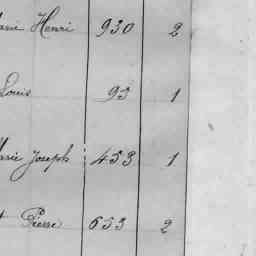 Marie Henri 930 2
Louis 93 1
Marie Joseph 453 1
Pierre 653 2